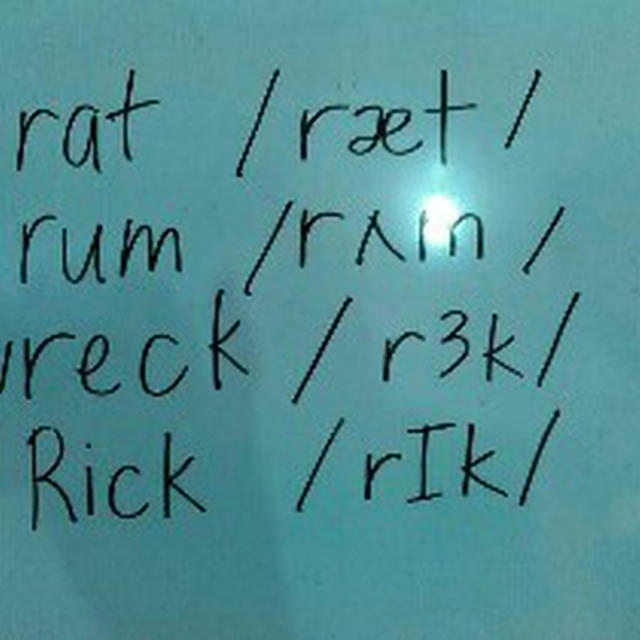 rat /ræt/
rum /rʌm/
wreck /r3k/
Rick /rIk/